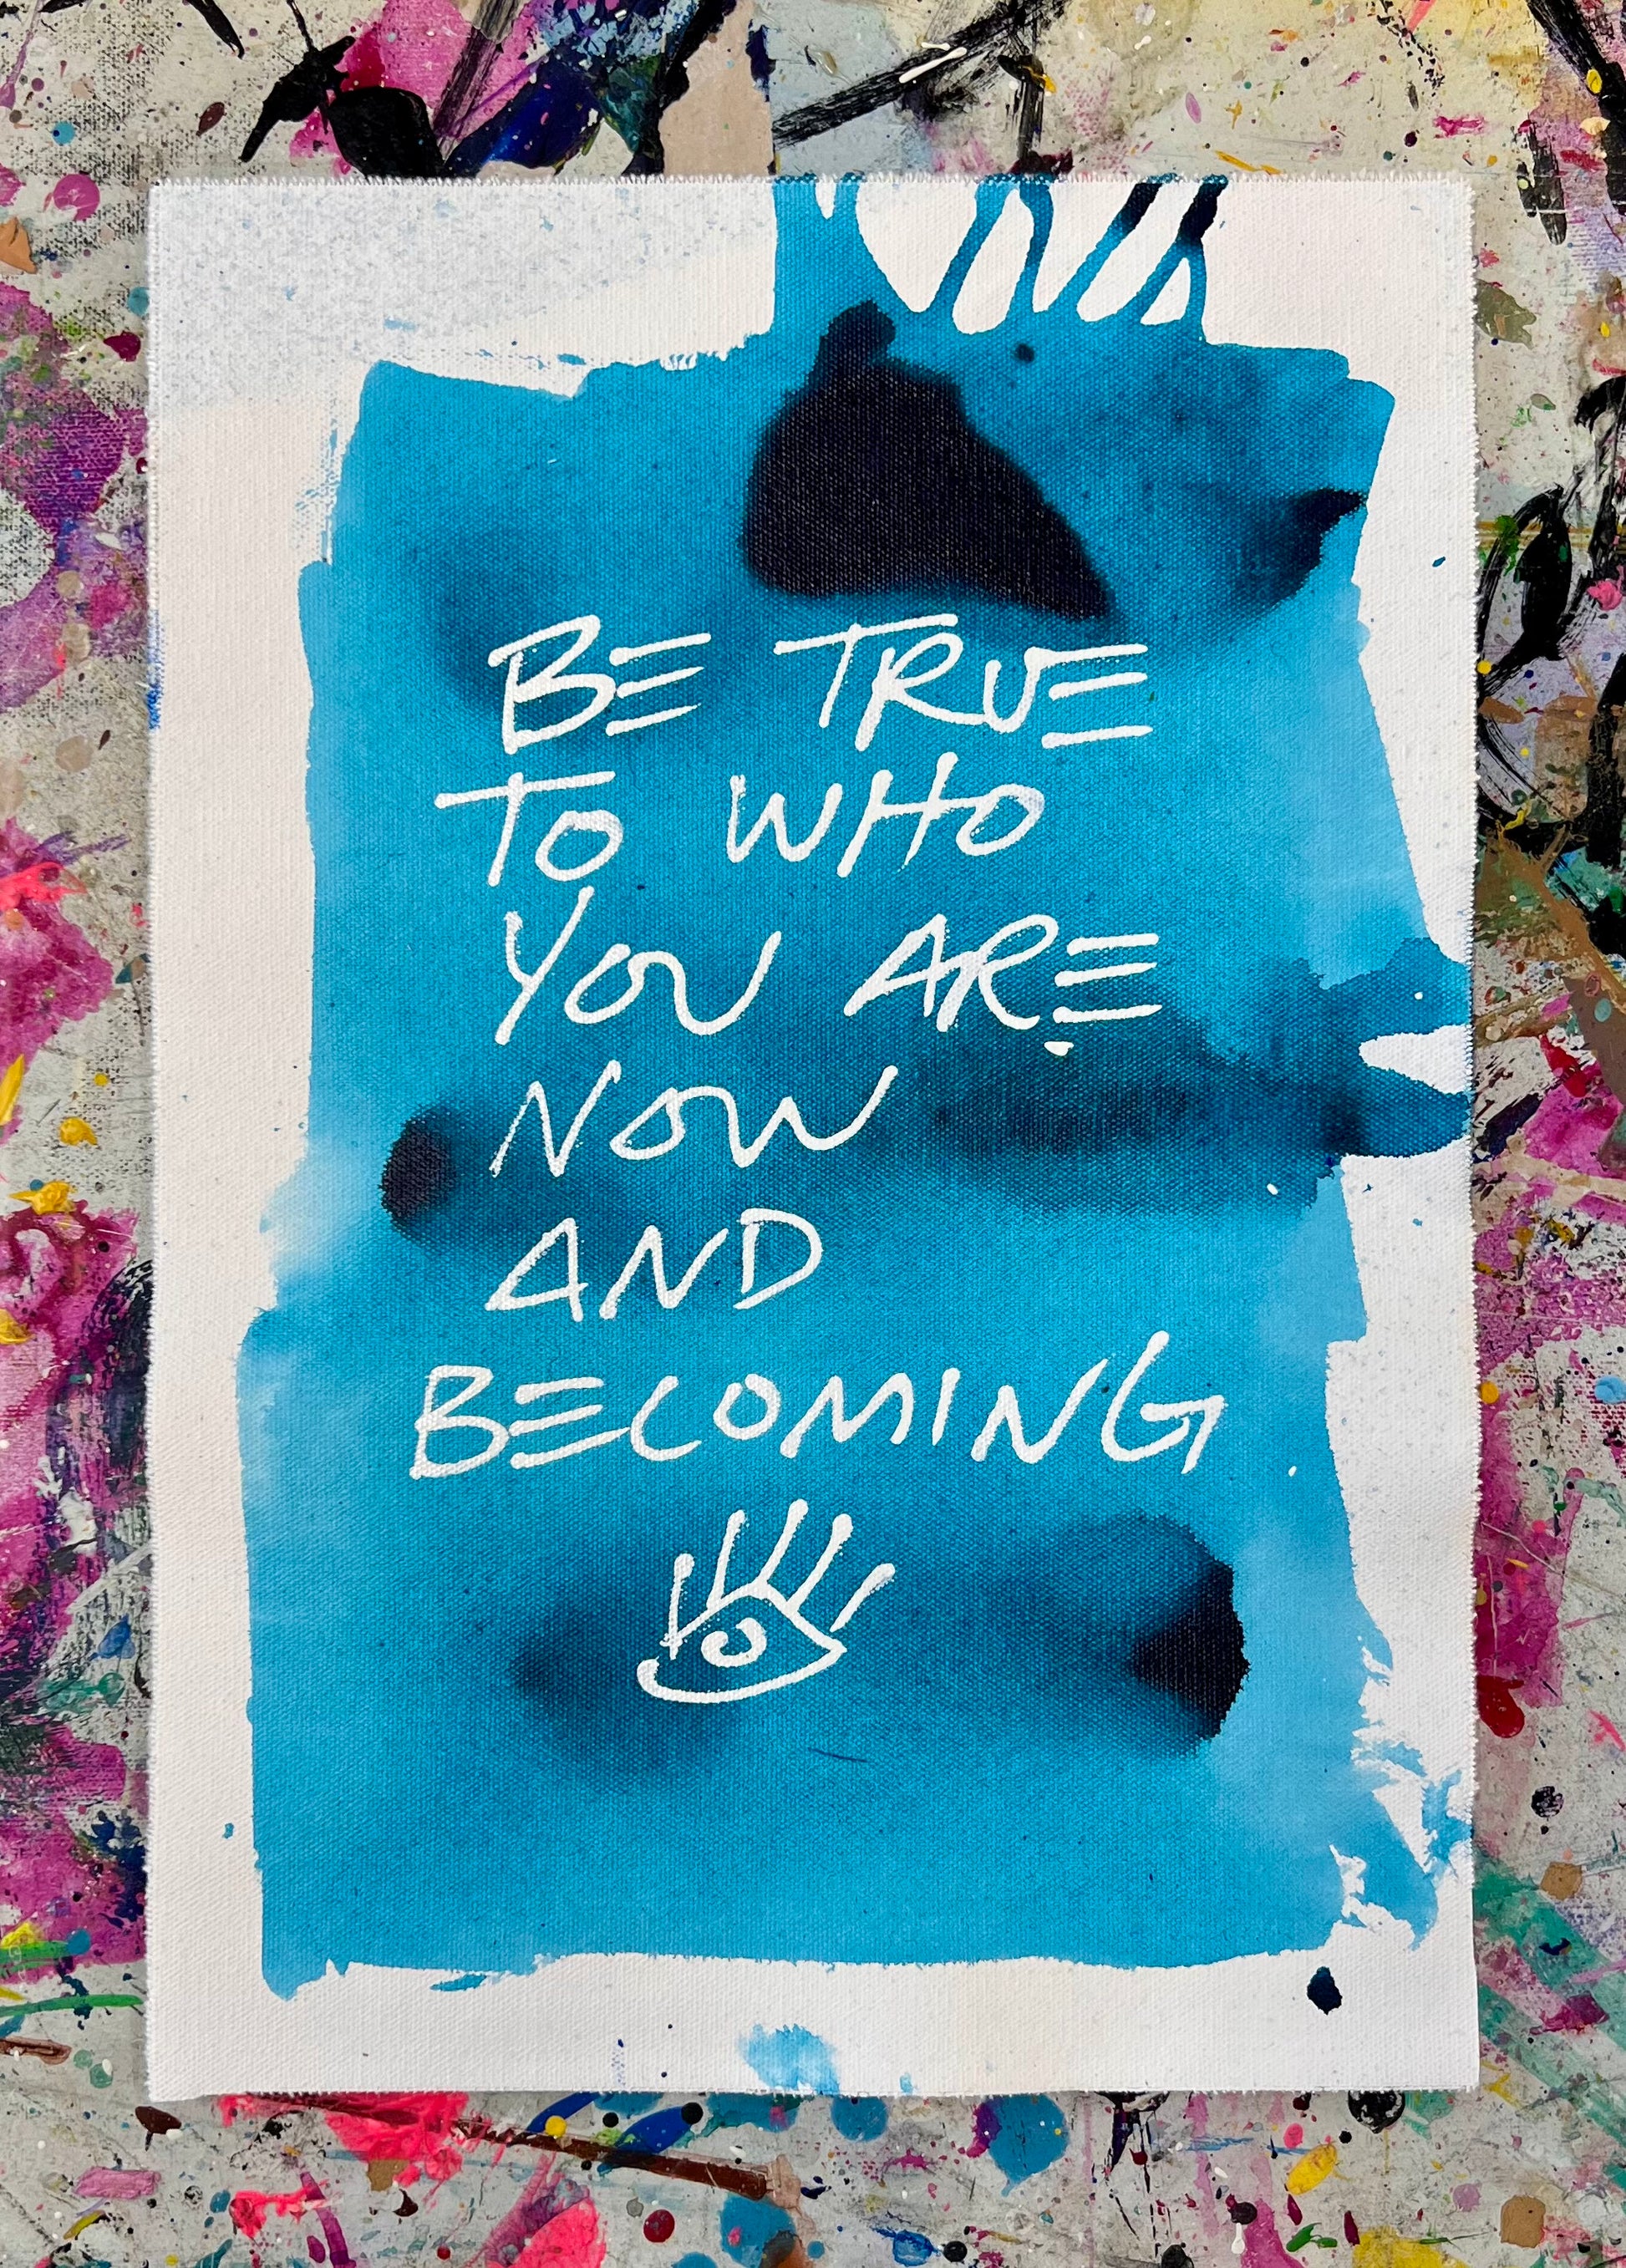 BE TRUE
TO WHO
YOU ARE
NOW
AND
BECOMING